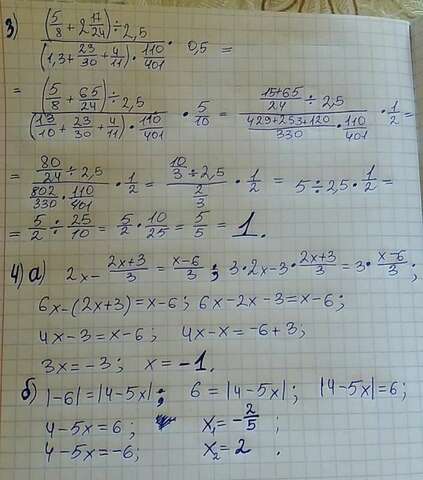 3) ((5/8 + 2 17/24) ÷ 2,5) / ((1,3 + 23/30 + 4/11) · 110/401) · 0,5 =
= ((5/8 + 65/24) ÷ 2,5) / ((13/10 + 23/30 + 4/11) · 110/401) · 5/10 = ((15+65)/24 ÷ 2,5) / ((429+253+120)/330 · 110/401) · 1/2 =
= (80/24 ÷ 2,5) / (802/330 · 110/401) · 1/2 = (10/3 ÷ 2,5) / (2/3) · 1/2 = 5 ÷ 2,5 · 1/2 =
= 5/2 ÷ 25/10 = 5/2 · 10/25 = 5/5 = 1.
4) а) 2x - (2x+3)/3 = (x-6)/3 ; 3·2x-3·(2x+3)/3 = 3·(x-6)/3 ;
6x-(2x+3)=x-6 ; 6x-2x-3=x-6 ;
4x-3=x-6 ; 4x-x=-6+3 ;
3x=-3 ; x=-1.
б) |-6|=|4-5x| ; 6=|4-5x| ; |4-5x|=6 ;
4-5x=6 ; x₁=-2/5 ;
4-5x=-6 ; x₂=2 .